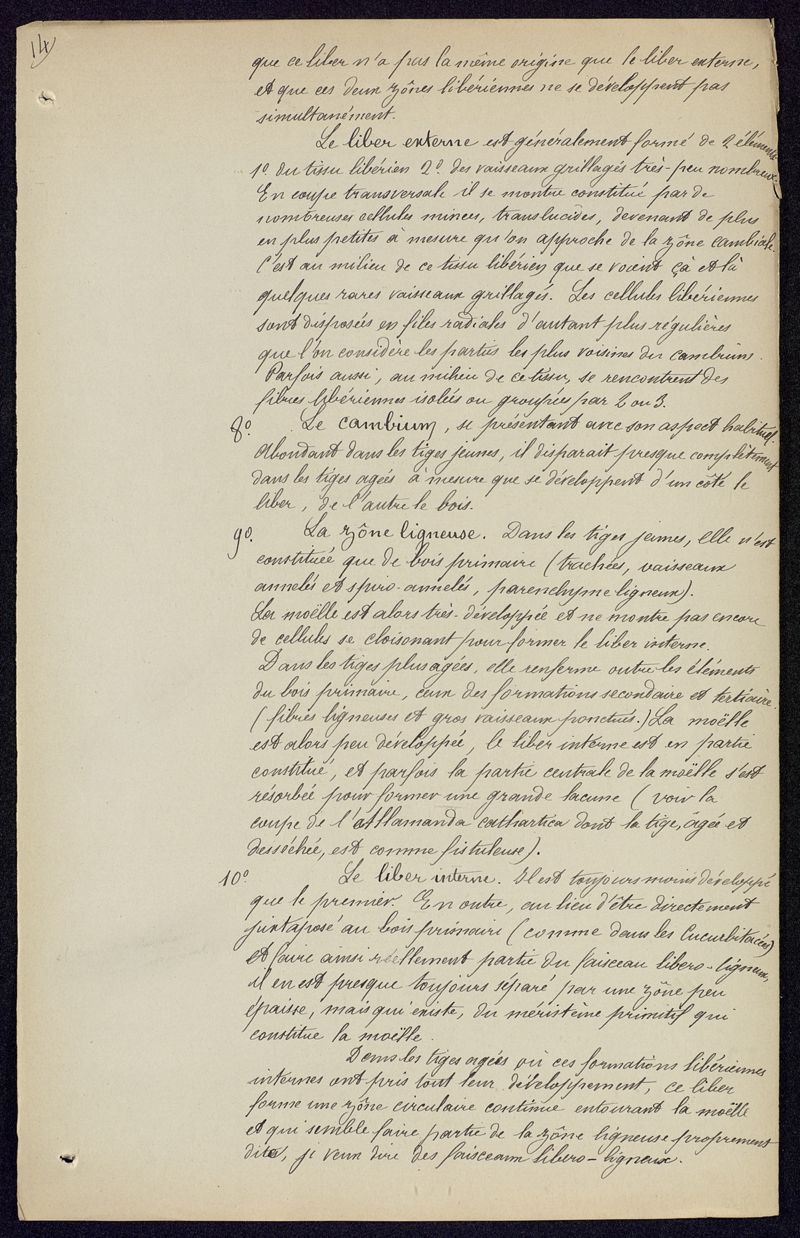 14
que ce liber n'a pas la même origine que le liber externe,
et que ces deux zônes libériennes ne se développent pas
simultanément.
Le liber externe est généralement formé de 2 éléments
1º du tissu libérien 2º des vaisseaux grillagés très-peu nombreux.
En coupe transversale il se montre constitué par de
nombreuses cellules minces, translucides, devenant de plus
en plus petites à mesure qu'on approche de la zône cambiale.
C'est au milieu de ce tissu libérien que se voient çà et là
quelques rares vaisseaux grillagés. Les cellules libériennes
sont disposées en files radiales d'autant plus régulières
que l'on considère les parties les plus voisines du cambium.
Parfois aussi, au milieu de ce tissu, se rencontrent des
fibres libériennes isolées ou groupées par 2 ou 3.
8º Le cambium, se présentant avec son aspect habituel.
Abondant dans les tiges jeunes, il disparait presque complètement
dans les tiges agées à mesure que se développent d'un côté le
liber, de l'autre le bois.
9º. La zône ligneuse. Dans les tiges jeunes, elle n'est
constituée que de bois primaire (trachées, vaisseaux
annelés et spiro-annelés, parenchyme ligneux).
La moëlle est alors très-développée et ne montre pas encore
de cellules se cloisonant pour former le liber interne.
Dans les tiges plus agées, elle renferme outre les éléments
du bois primaire, ceux des formations secondaire et tertiaire.
(fibres ligneuses et gros vaisseaux ponctués.) La moëlle
est alors peu développée, le liber interne est en partie
constitué, et parfois la partie centrale de la moëlle s'est
résorbée pour former une grande lacune (voir la
coupe de l'Allamanda cathartica dont la tige, âgée et
desséchée, est comme fistuleuse).
10º Le liber interne. Il est toujours moins développé
que le premier. En outre, au lieu d'être directement
juxtaposé au bois primaire (comme dans les Cucurbitacées)
et faire ainsi réellement partie du faisceau libero-ligneux,
il en est presque toujours séparé par une zône peu
épaisse, mais qui existe, du méristème primitif qui
constitue la moëlle.
Dans les tiges agées où ces formations libériennes
internes ont pris tout leur développement, ce liber
forme une zône circulaire continue entourant la moëlle
et qui semble faire partie de la zône ligneuse proprement
dite, je veux dire des faisceaux libero-ligneux.